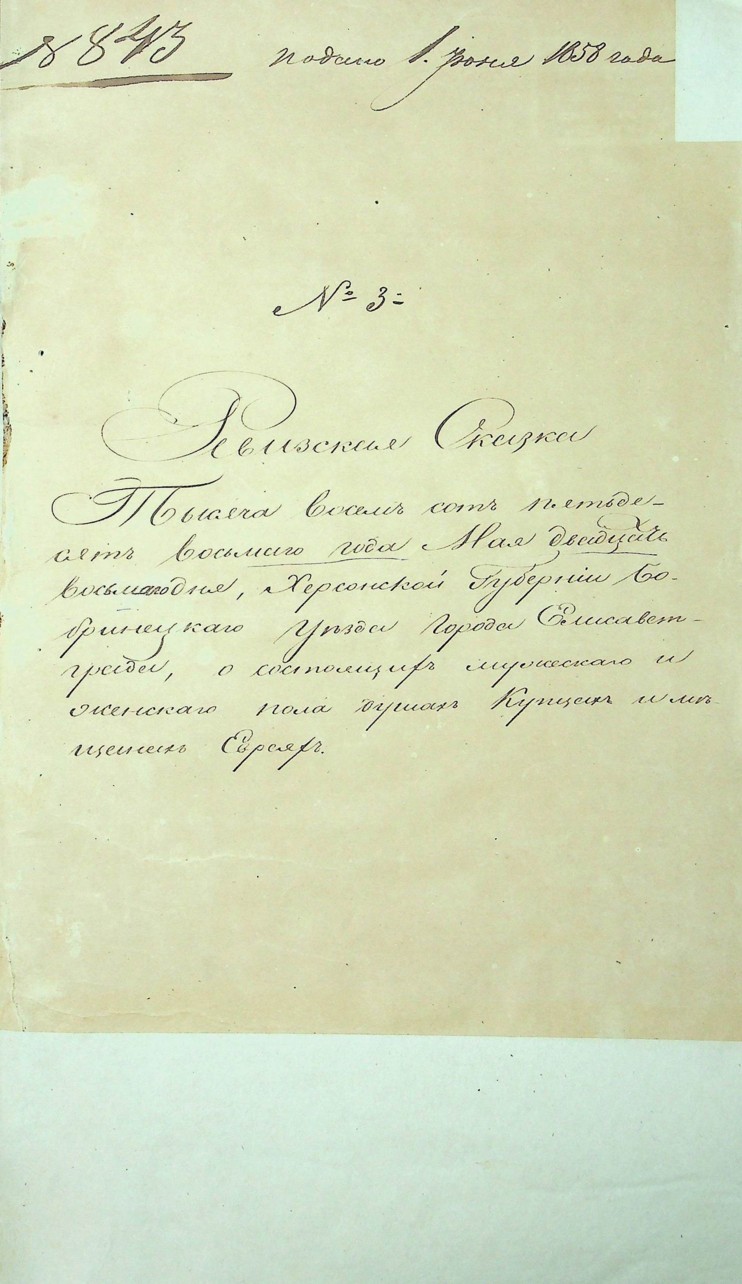 № 843 подано 1. Юния 1858 года
№ 3 =
Ревизская Сказка
Тысяча восемъ сотъ пятьде-
сятъ восьмаго года Мая двадцать
восьмагодня, Херсонской Губерніи Бо-
бринецкаго Уѣзда города Елисавет-
града, о состоящихъ мужескаго и
женскаго пола душахъ Купцахъ и мѣ-
щанахъ Евреяхъ.